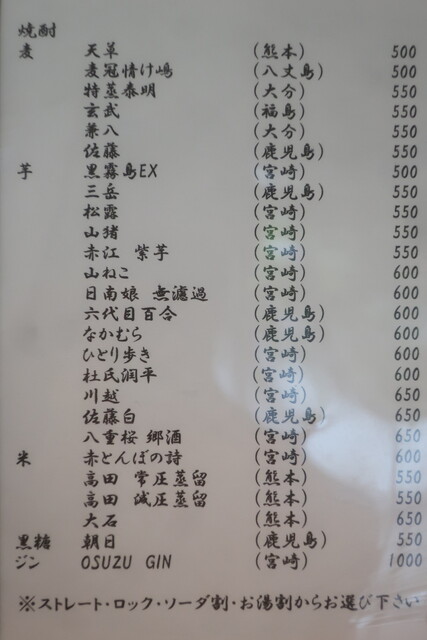 焼酎
麦 天草 (熊本) 500
麦冠情け嶋 (八丈島) 500
特蒸泰明 (大分) 550
玄武 (福島) 550
兼八 (大分) 550
佐藤 (鹿児島) 550
芋 黒霧島EX (宮崎) 500
三岳 (鹿児島) 550
松露 (宮崎) 550
山猪 (宮崎) 550
赤江 紫芋 (宮崎) 550
山ねこ (宮崎) 600
日南娘 無濾過 (宮崎) 600
六代目百合 (鹿児島) 600
なかむら (鹿児島) 600
ひとり歩き (宮崎) 600
杜氏潤平 (宮崎) 600
川越 (宮崎) 650
佐藤白 (鹿児島) 650
八重桜 郷酒 (宮崎) 650
米 赤とんぼの詩 (宮崎) 600
高田 常圧蒸留 (熊本) 550
高田 減圧蒸留 (熊本) 550
大石 (熊本) 650
黒糖 朝日 (鹿児島) 550
ジン OSUZU GIN (宮崎) 1000
※ストレート・ロック・ソーダ割・お湯割からお選び下さい